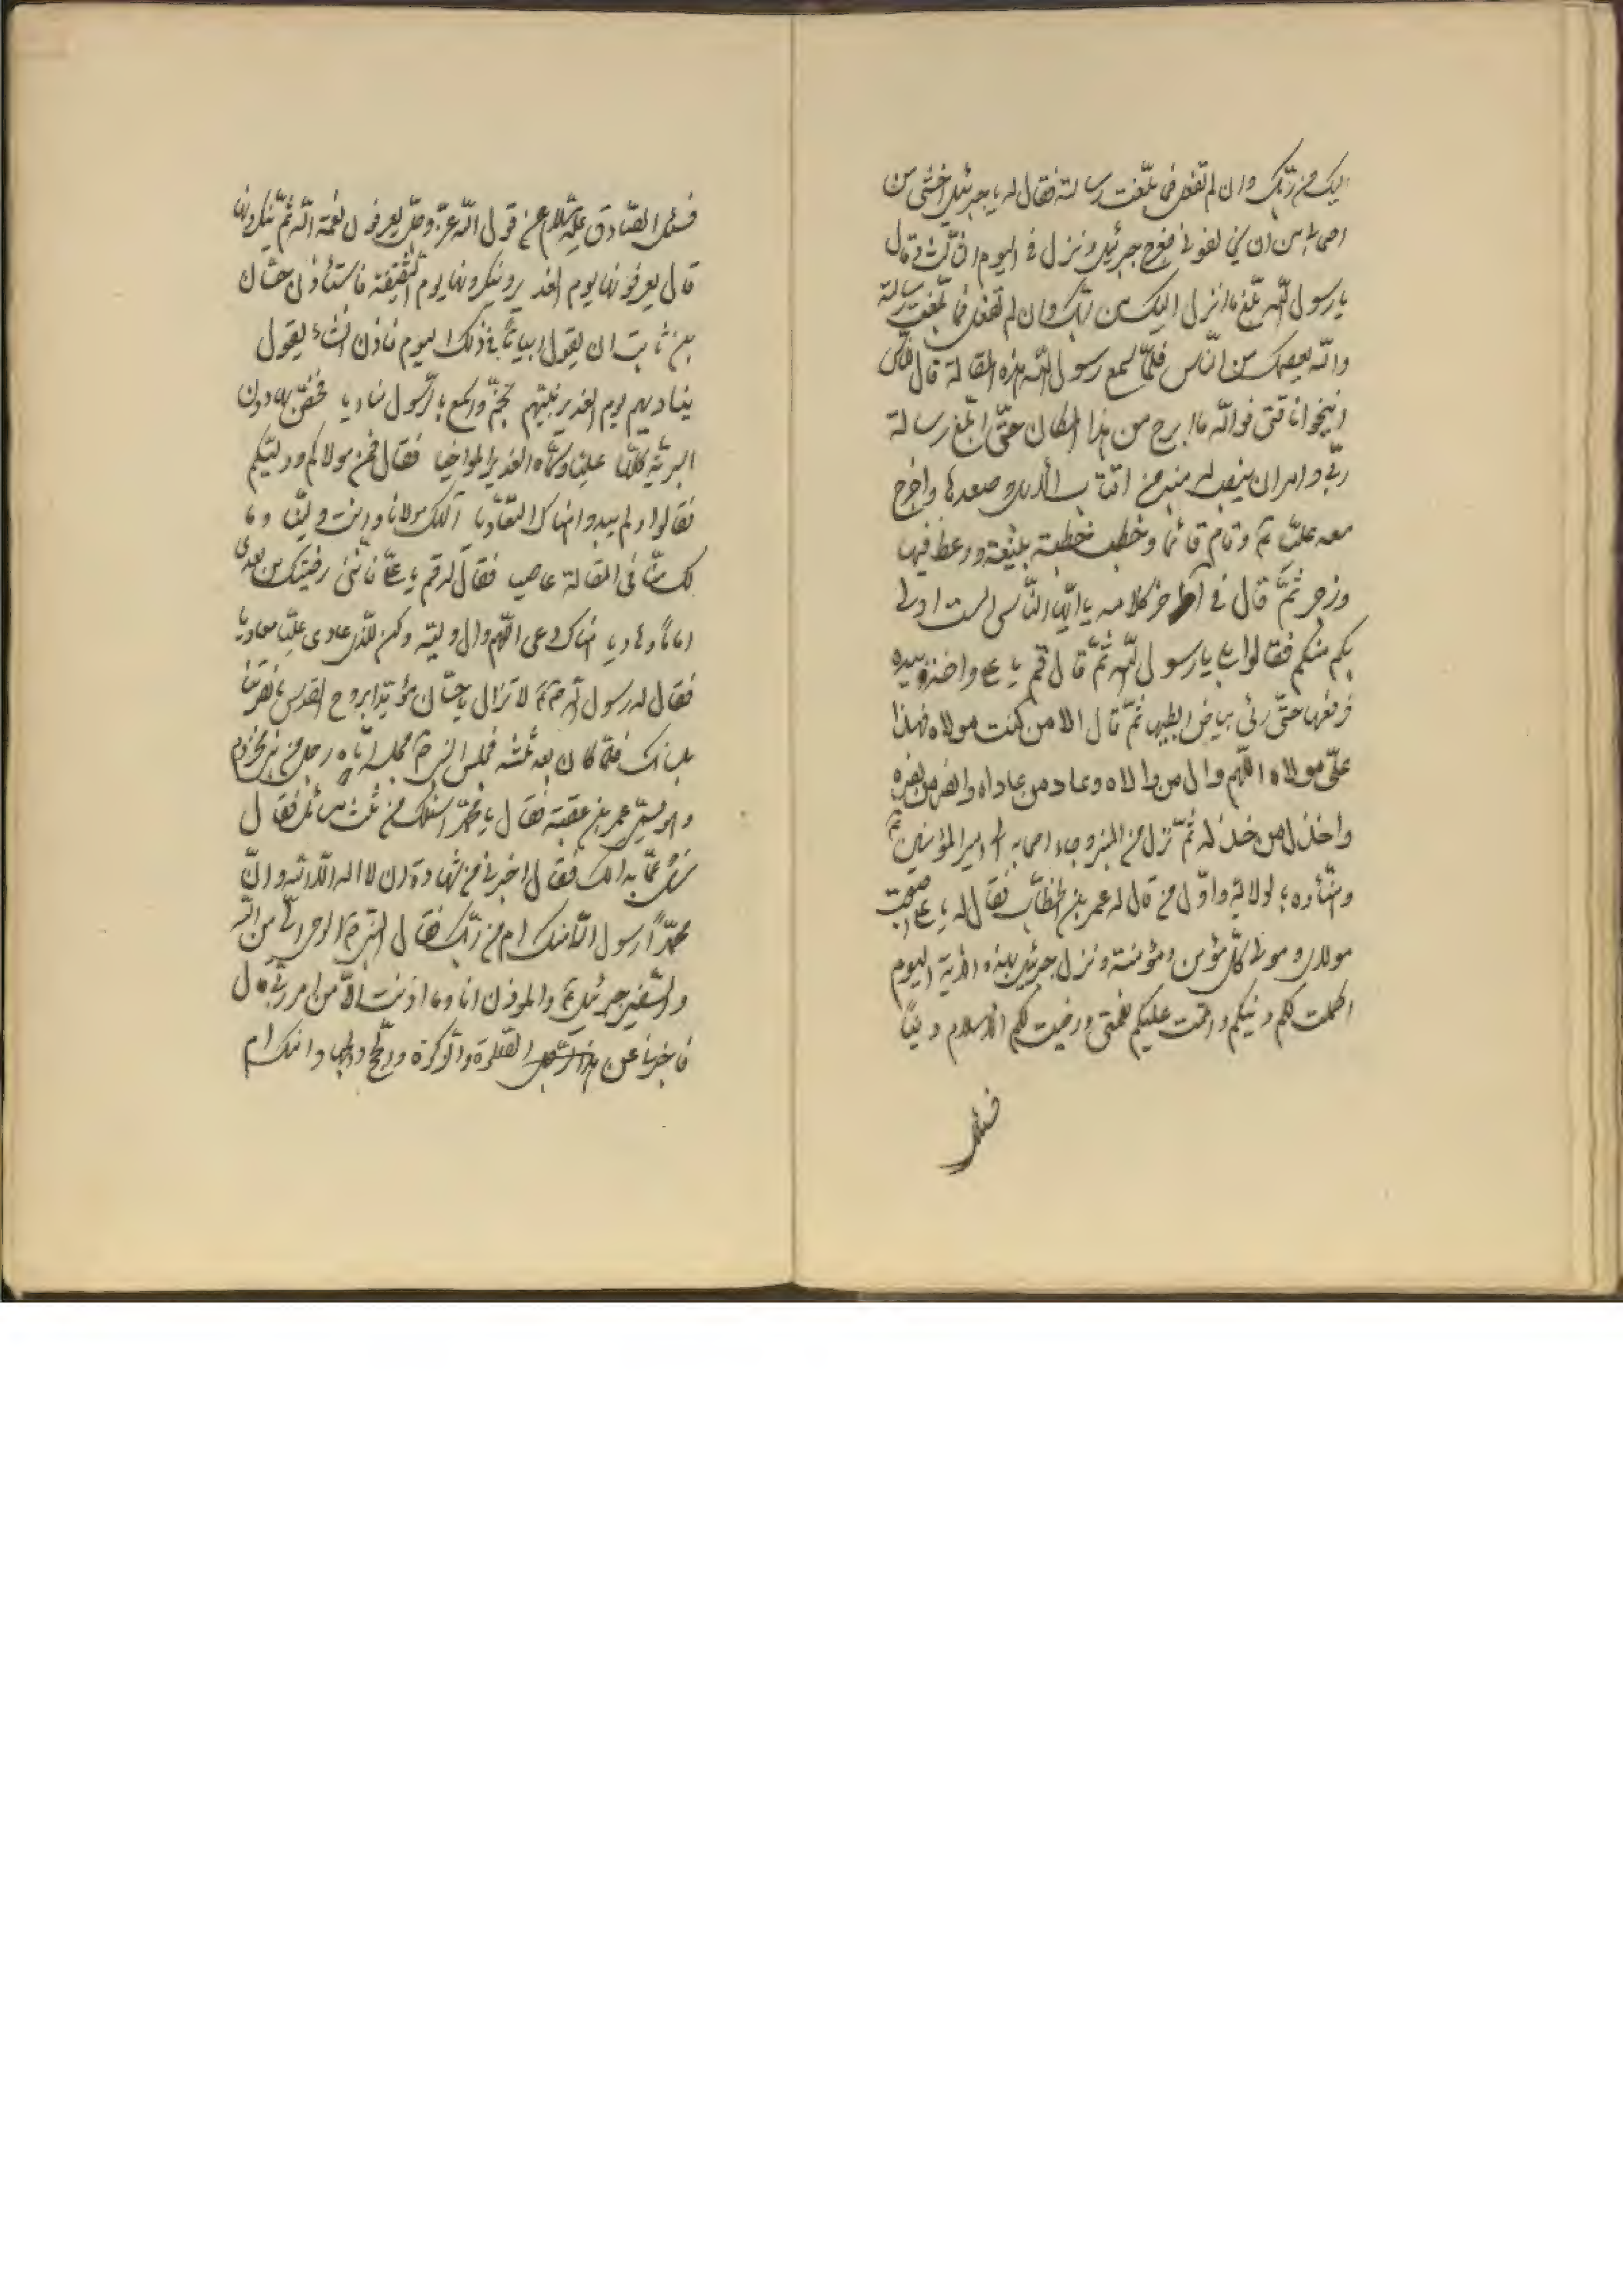 اليك من ربك وان لم تفعل فما بلغت رسالته فقال له يا جبرئيل اخشى من
اصحابي من ان يخالفوني فعرج جبرئيل ونزل في اليوم الثالث وقال
يا رسول الله بلغ ما انزل اليك من ربك وان لم تفعل فما بلغت رسالته
والله يعصمك من الناس فلما سمع رسول الله هذه المقالة قال للناس
انيخوا ناقتي فوالله ما ابرح من هذا المكان حتى ابلغ رسالة
ربي وامر ان ينصب له منبر من اقتاب الابل وصعدها واخرج
معه عليا ع وقام قائما وخطب خطبة بليغة ووعظ فيها
وزجر ثم قال في آخر كلامه يا ايها الناس الست اولى
بكم منكم فقالوا بلى يا رسول الله ثم قال قم يا علي واخذ بيده
فرفعها حتى رئي بياض ابطيهما ثم قال الا من كنت مولاه فهذا
علي مولاه اللهم وال من والاه وعاد من عاداه وانصر من نصره
واخذل من خذله ثم نزل من المنبر وجاء اصحابه الى امير المؤمنين ع
وهناؤه بالولاية واول من قال له عمر بن الخطاب فقال له يا علي اصبحت
مولاي ومولى كل مؤمن ومؤمنة ونزل جبرئيل بهذه الاية اليوم
اكملت لكم دينكم واتممت عليكم نعمتي ورضيت لكم الاسلام دينا
فسئل
فسئل الصادق عليه السلام عن قول الله عز وجل يعرفون نعمة الله ثم ينكرونها
قال يعرفونها يوم الغدير وينكرونها يوم السقيفة فاستأذن حسان
بن ثابت ان يقول ابياتا في ذلك اليوم فاذن انشاء يقول
يناديهم يوم الغدير نبيهم بخم واسمع بالرسول مناديا فخص بها دون
البرية كلها عليا وسماه الغدير المواخيا فقال فمن مولاكم ووليكم
فقالوا ولم يبدوا هناك التعاديا الهك مولانا وانت ولينا وما
لك منا في المقالة عاصيا فقال له قم يا علي فانني رضيتك من بعدي
اماما وهاديا هناك دعى اللهم وال وليه وكن للذي عادى عليا معاديا
فقال له رسول الله ص لا تزال يا حسان مؤيدا بروح القدس ما نصرتنا
بلسانك فلما كان بعد ثلثة فجلس النبي ص مجلسه اتاه رجل من بني مخزوم
وهو يسمى عمر بن عقبة فقال يا محمد اسئلك من ثلث مسائل فقال
سل عما بدالك فقال اخبرني من شهادة ان لا اله الا الله وان
محمدا رسول الله امنك ام من ربك فقال النبي ص الوحي الي من الله
والسفير جبرئيل ع والموذن انا وما اذنت الا من امر ربي قال
فاخبرنا عن هذا الرجل الصلوة والزكوة والحج والجهاد امنك ام